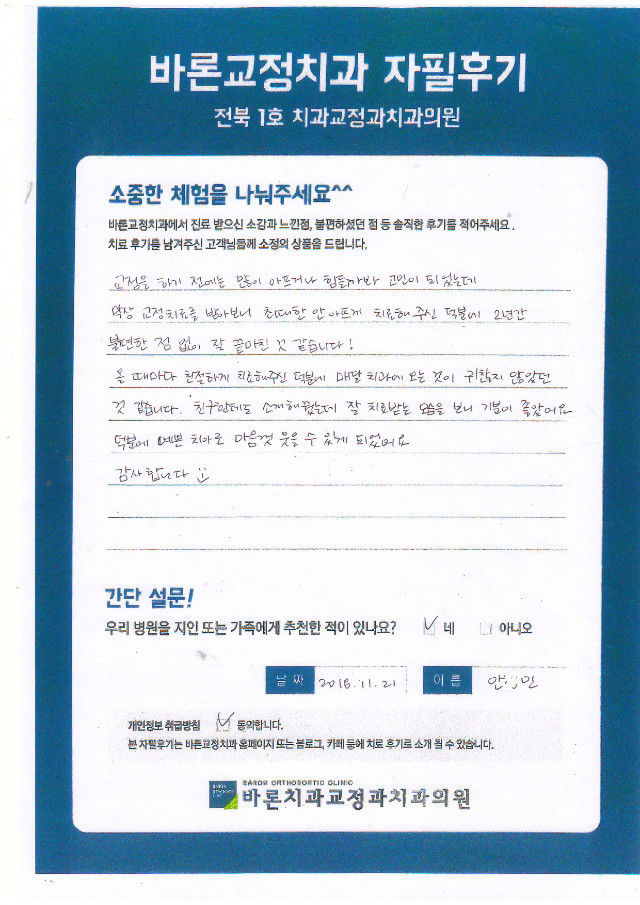 바론교정치과 자필후기
전북 1호 치과교정과치과의원
소중한 체험을 나눠주세요^^
바론교정치과에서 진료 받으신 소감과 느낀점, 불편하셨던 점 등 솔직한 후기를 적어주세요.
치료 후기를 남겨주신 고객님들께 소정의 상품을 드립니다.
교정을 하기 전에는 많이 아프거나 힘들까봐 고민이 되었는데
막상 교정치료를 받아보니 최대한 안 아프게 치료해주신 덕분에 2년간
불편한 점 없이 잘 끝마친 것 같습니다!
올 때마다 친절하게 치료해주신 덕분에 매달 치과에 오는 것이 귀찮지 않았던
것 같습니다. 친구한테도 소개해줬는데 잘 치료받는 모습을 보니 기분이 좋았어요
덕분에 예쁜 치아로 마음껏 웃을 수 있게 되었어요
감사합니다
간단 설문!
우리 병원을 지인 또는 가족에게 추천한 적이 있나요? 네 아니오
날짜 2018.11.21 이름
개인정보 취급방침 동의합니다.
본 자필후기는 바론교정치과 홈페이지 또는 블로그, 카페 등에 치료 후기로 소개 될 수 있습니다.
BARON ORTHODONTIC CLINIC
바론치과교정과치과의원